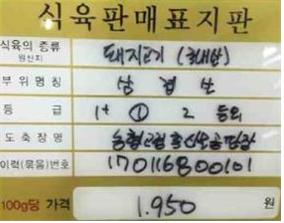 식육판매표지판
식육의 종류 돼지고기 (국내산)
원산지
부위명칭 삼겹살
등급 1+ ① 2 등외
도축장명 농협고령축산물공판장
이력(묶음)번호 170116800101
100g당 가격 1.950 원